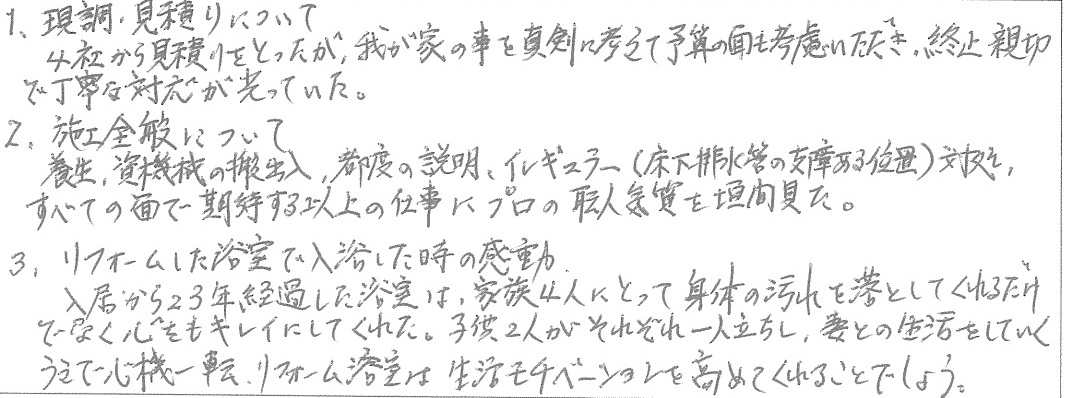 1、現調・見積りについて
4社から見積りをとったが、我が家の事を真剣に考えて予算の面も考慮いただき、終止親切
で丁寧な対応が光っていた。
2、施工全般について
養生、資機械の搬出入、都度の説明、イレギュラー(床下排水管の支障ある位置)対応、
すべての面で期待する以上の仕事にプロの職人気質を垣間見た。
3、リフォームした浴室で入浴した時の感動
入居から23年経過した浴室は、家族4人にとって身体の汚れを落としてくれるだけ
でなく心をもキレイにしてくれた。子供2人がそれぞれ一人立ちし、妻との生活をしていく
うえで心機一転、リフォーム浴室は生活モチベーションを高めてくれることでしょう。